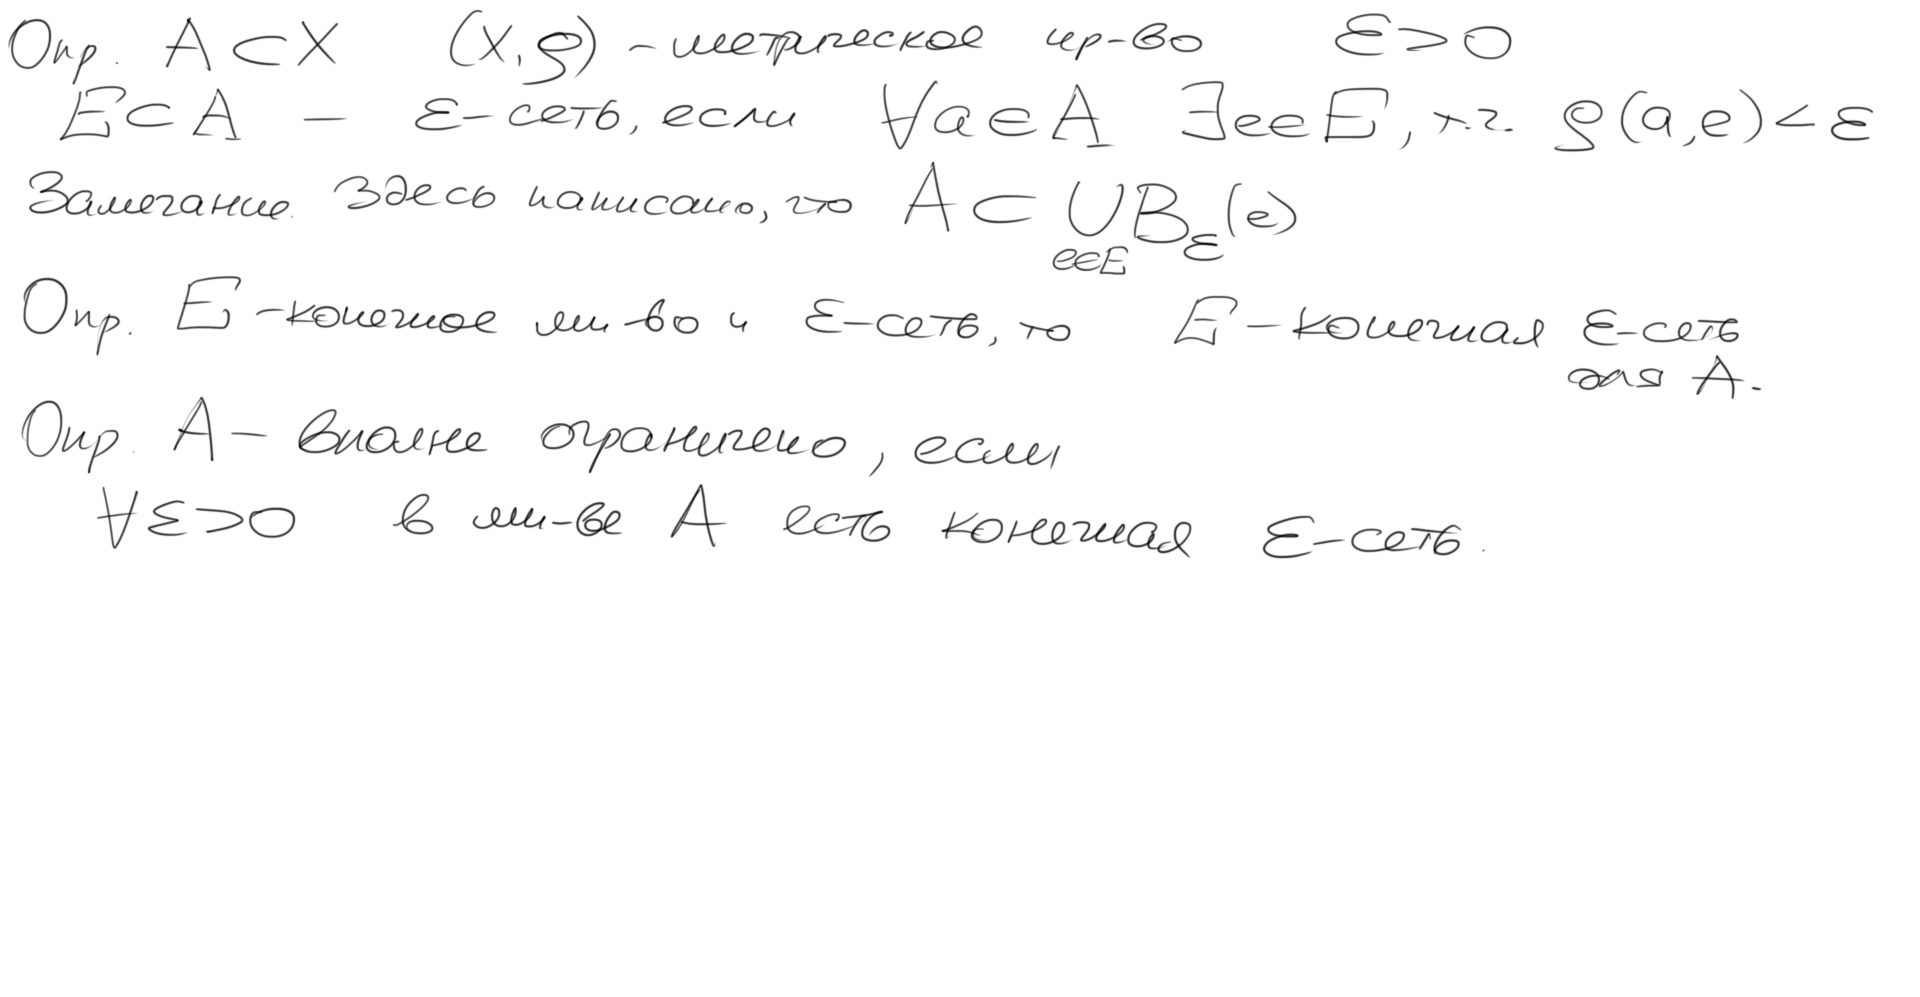 Опр. A⊂X (X,ρ) – метрическое пр-во ε>0
E⊂A – ε-сеть, если ∀a∈A ∃e∈E, т.ч. ρ(a,e)<ε
Замечание. Здесь написано, что A⊂∪B_ε(e)
e∈E
Опр. E – конечное мн-во и ε-сеть, то E – конечная ε-сеть
для A.
Опр. A – вполне ограничено, если
∀ε>0 в мн-ве A есть конечная ε-сеть.